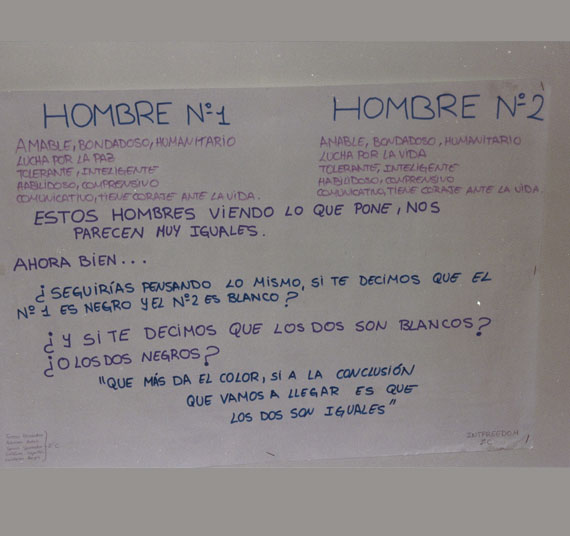 HOMBRE Nº1
AMABLE, BONDADOSO, HUMANITARIO
LUCHA POR LA PAZ
TOLERANTE, INTELIGENTE
HABILIDOSO, COMPRENSIVO
COMUNICATIVO, TIENE CORAJE ANTE LA VIDA.
HOMBRE Nº2
AMABLE, BONDADOSO, HUMANITARIO
LUCHA POR LA VIDA
TOLERANTE, INTELIGENTE
HABILIDOSO, COMPRENSIVO
COMUNICATIVO, TIENE CORAJE ANTE LA VIDA.
ESTOS HOMBRES VIENDO LO QUE PONE, NOS
PARECEN MUY IGUALES.
AHORA BIEN...
¿SEGUIRÍAS PENSANDO LO MISMO, SI TE DECIMOS QUE EL
Nº1 ES NEGRO Y EL Nº2 ES BLANCO?
¿Y SI TE DECIMOS QUE LOS DOS SON BLANCOS?
¿O LOS DOS NEGROS?
"QUE MÁS DA EL COLOR, SI A LA CONCLUSIÓN
QUE VAMOS A LLEGAR ES QUE
LOS DOS SON IGUALES"
INTFREEDOM